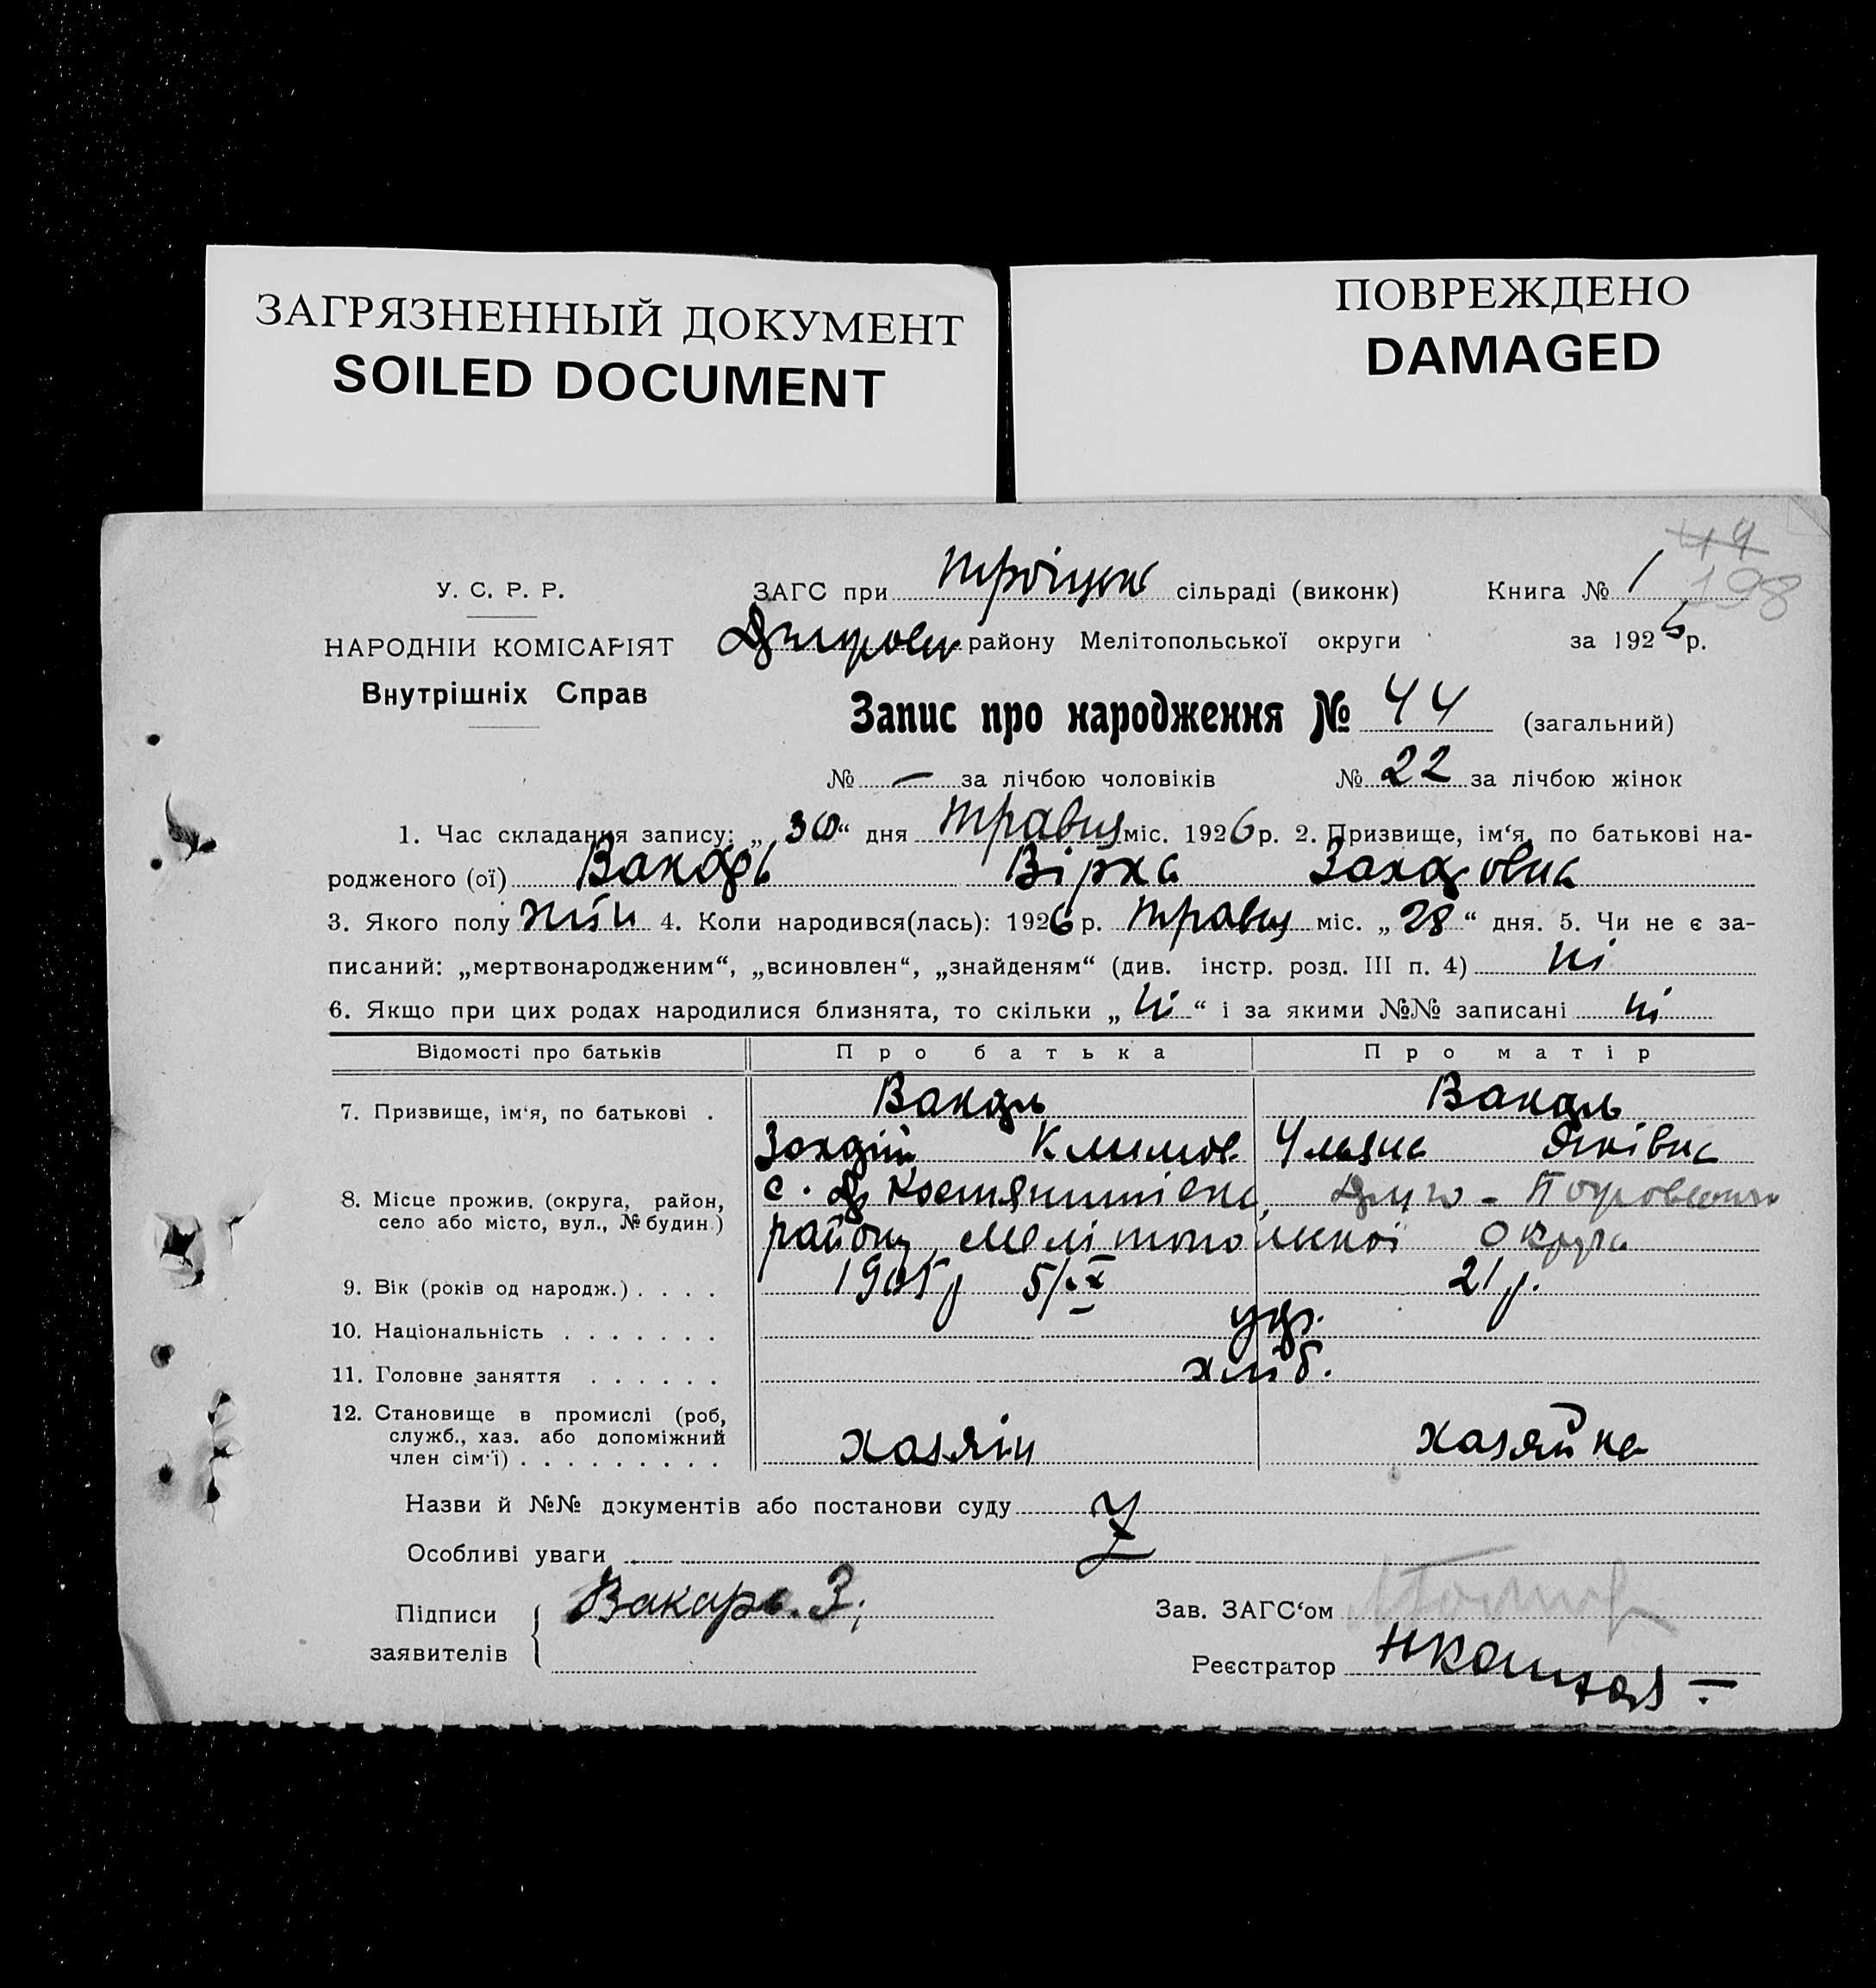 ЗАГРЯЗНЕННЫЙ ДОКУМЕНТ
SOILED DOCUMENT
ПОВРЕЖДЕНО
DAMAGED
44
198
У. С. Р. Р.
НАРОДНІЙ КОМІСАРІЯТ
Внутрішніх Справ
ЗАГС при Троїцьк сільраді (виконк) Книга № 1
району Мелітопольської округи за 1926 р.
Запис про народження № 44 (загальний)
№ — за лічбою чоловіків № 22 за лічбою жінок
1. Час складання запису: „30“ дня травця міс. 1926 р. 2. Призвище, ім‘я, по батькові на-
родженого (ої) Вакарь Вірка
3. Якого полу жін 4. Коли народився(лась): 1926 р. травця міс. „28“ дня. 5. Чи не є за-
писаний: „мертвонародженим“, „всиновлен“, „знайденям“ (див. інстр. розд. III п. 4) ні
6. Якщо при цих родах народилися близнята, то скільки „ні“ і за якими №№ записані ні
Відомості про батьків Про батька Про матір
7. Призвище, ім‘я, по батькові . Вакарь Вакарь
Климов. Уляна Яківна
8. Місце прожив. (округа, район,
село або місто, вул., № будин.)
с. Костянтинівка, Покровського
району, Мелітопольської Округи
9. Вік (років од народж.) . . . . 1905 р 5/IX 21 р.
10. Національність . . . . . . . укр.
11. Головне заняття . . . . . . хліб.
12. Становище в промислі (роб,
служб., хаз. або допоміжний
член сім‘ї) . . . . . . . . . хазяїн хазяйка
Назви й №№ документів або постанови суду
Особливі уваги
Підписи
заявителів
Вакарь. З.
Зав. ЗАГС‘ом
Реєстратор